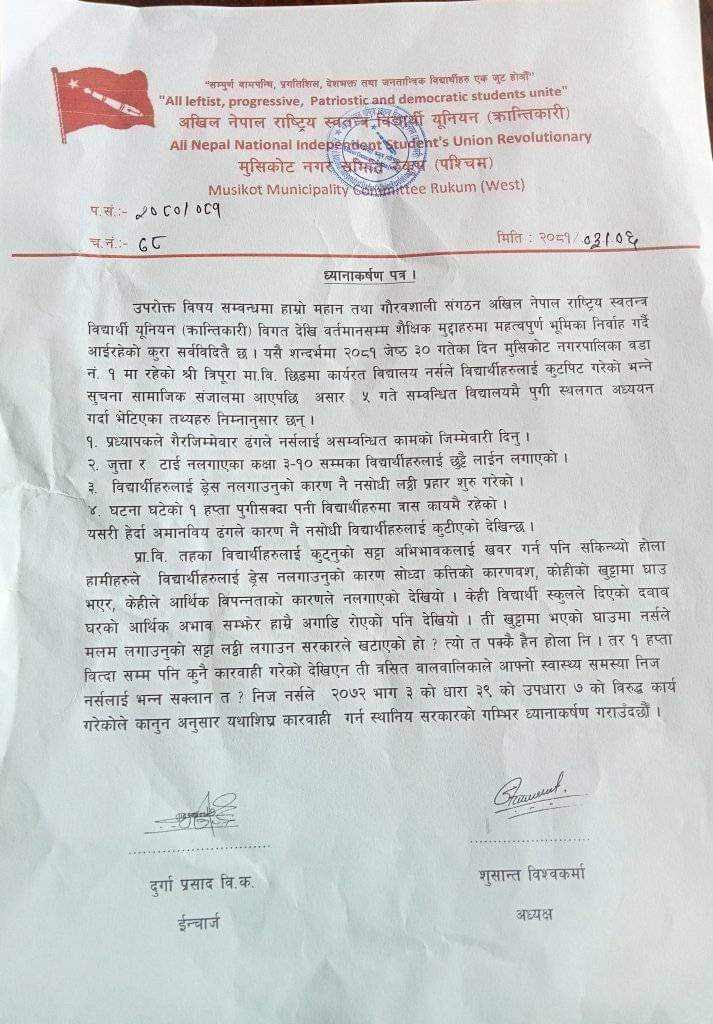 "सम्पुर्ण वामपन्थि, प्रगतिशिल, देशभक्त तथा जनतान्त्रिक विद्यार्थीहरु एक जूट होऔं"
"All leftist, progressive, Patriostic and democratic students unite"
अखिल नेपाल राष्ट्रिय स्वतन्त्र विद्यार्थी यूनियन (क्रान्तिकारी)
All Nepal National Independent Student's Union Revolutionary
मुसिकोट नगर समिति रुकुम (पश्चिम)
Musikot Municipality Committee Rukum (West)
प.सं.:- २०८०/०८१
च.नं.:- ६८
मिति : २०८१/०३/०६
ध्यानाकर्षण पत्र ।
उपरोक्त विषय सम्वन्धमा हाम्रो महान तथा गौरवशाली संगठन अखिल नेपाल राष्ट्रिय स्वतन्त्र
विद्यार्थी यूनियन (कान्तिकारी) विगत देखि वर्तमानसम्म शैक्षिक मुद्दाहरुमा महत्वपुर्ण भूमिका निर्वाह गर्दै
आईरहेको कुरा सर्वविदितै छ । यसै शन्दर्भमा २०८१ जेष्ठ ३० गतेका दिन मुसिकोट नगरपालिका वडा
नं. १ मा रहेको श्री त्रिपूरा मा.वि. छिङमा कार्यरत विद्यालय नर्सले विद्यार्थीहरुलाई कुटपिट गरेको भन्ने
सुचना सामाजिक संजालमा आएपछि असार ५ गते सम्वन्धित विद्यालयमै पुगी स्थलगत अध्ययन
गर्दा भेटिएका तथ्यहरु निम्नानुसार छन् ।
१. प्रध्यापकले गैरजिम्मेवार ढंगले नर्सलाई असम्वन्धित कामको जिम्मेवारी दिनु ।
२. जुत्ता र टाई नलगाएका कक्षा ३-१० सम्मका विद्यार्थीहरुलाई छुट्टै लाईन लगाएको ।
३. विद्यार्थीहरुलाई ड्रेस नलगाउनुको कारण नै नसोधी लठ्ठी प्रहार शुरु गरेको ।
४. घटना घटेको १ हप्ता पुगीसक्दा पनी विद्यार्थीहरुमा त्रास कायमै रहेको ।
यसरी हेर्दा अमानविय ढंगले कारण नै नसोधी विद्यार्थीहरुलाई कुटीएको देखिन्छ ।
प्रा.वि. तहका विद्यार्थीहरुलाई कुट्नुको सट्टा अभिभावकलाई खवर गर्न पनि सकिन्थ्यो होला
हामीहरुले विद्यार्थीहरुलाई ड्रेस नलगाउनुको कारण सोध्दा कत्तिको कारणवश, कोहीको खुट्टामा घाउ
भएर, केहीले आर्थिक विपन्नताको कारणले नलगाएको देखियो । केही विद्यार्थी स्कुलले दिएको दवाव
घरको आर्थिक अभाव सम्झेर हाम्रै अगाडि रोएको पनि देखियो । ती खुट्टामा भएको घाउमा नर्सले
मलम लगाउनुको सट्टा लठ्ठी लगाउन सरकारले खटाएको हो ? त्यो त पक्कै हैन होला नि । तर १ हप्ता
वित्दा सम्म पनि कुनै कारवाही गरेको देखिएन ती त्रसित वालवालिकाले आफ्नो स्वास्थ्य समस्या निज
नर्सलाई भन्न सक्लान त ? निज नर्सले २०७२ भाग ३ को धारा ३९ को उपधारा ७ को विरुद्ध कार्य
गरेकोले कानुन अनुसार यथाशिघ्र कारवाही गर्न स्थानिय सरकारको गम्भिर ध्यानाकर्षण गराउँदछौं ।
दुर्गा प्रसाद वि.क.
शुसान्त विश्वकर्मा
ईन्चार्ज
अध्यक्ष